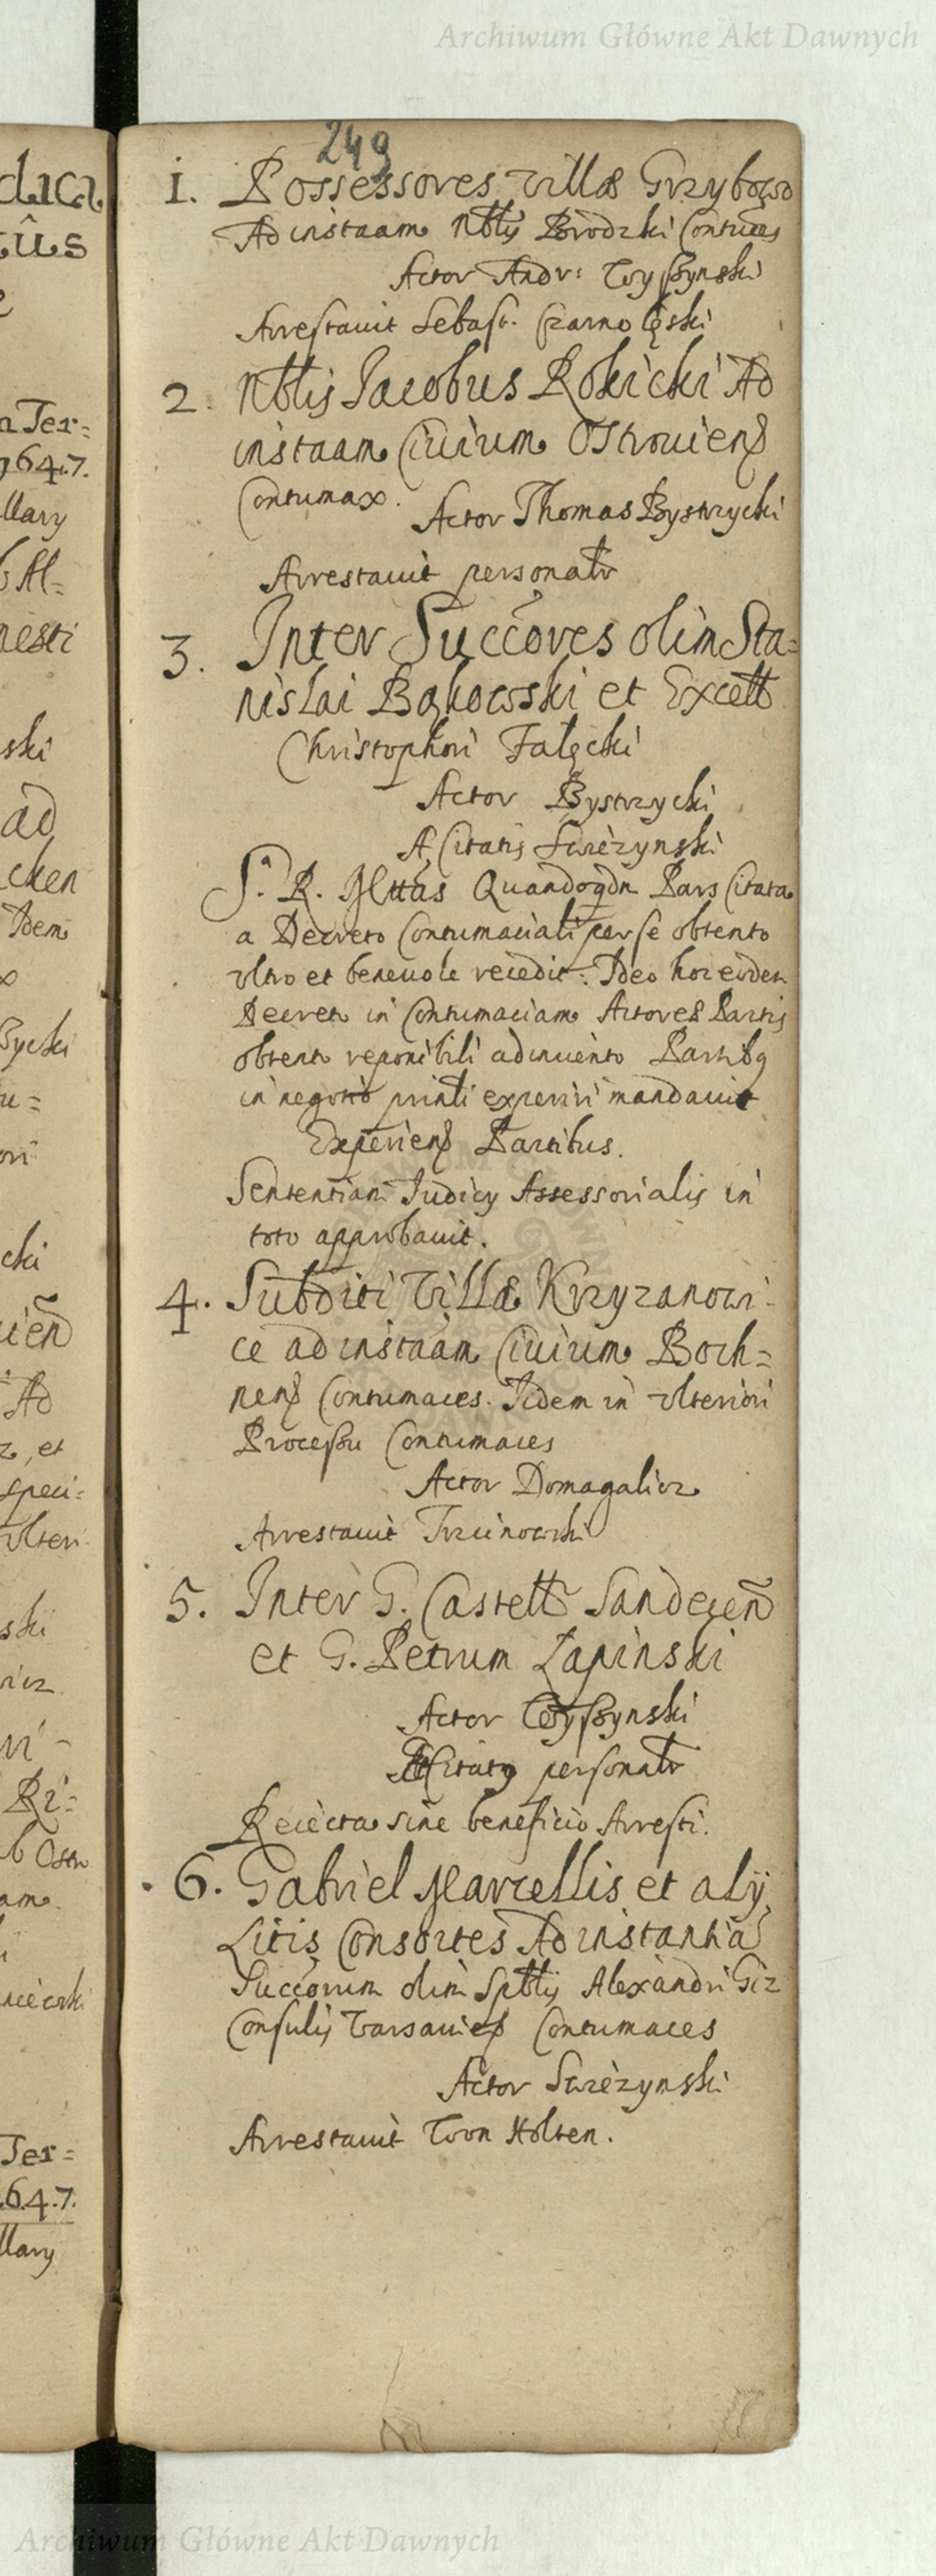 Archiwum Główne Akt Dawnych
dica
tûs
n Ter=
1647.
llary
b Al=
nesti
ski
ad
cken
Idem
x
Bycki
u=
ori
cki
Ad
z, et
speci=
vlteri
ski
icz
Ri=
b Ostr
am.
Ter=
1647.
llary
249
1. Possessores villæ Grzybowo
Ad instaam Nblis Brodzki Contuces
Actor Andr: Wyszynski
Arrestauit Sebast. Czarnolęski
2. Nblis Jacobus Rokicki Ad
instaam Ciuium Ostrouiens
Contumax.
Actor Thomas Bystrzycki
Arrestauit personalr
3. Inter Succores olim Sta=
nislai Bąkowski et Excell
Christophori Falęcki
Actor Bystrzycki
A Citatis Swiezynski
S. R. Mttas Quandoqdn Pars Citata
a Decreto Contumaciali per se obtento
vltro et beneuole recedit: Ideo hoc eodem
Decreto in Contumaciam Actores Partis
obtento reponibili adinuento Partibq
in negotio prinli experiri mandauit
Experiens Partibus.
Sententiam Iudicy Assessorialis in
toto approbauit.
4. Subditi Villæ Krzyzanowi-
ce ad instaam Ciuium Boch=
nens Contumaces. Iidem in vlteriori
Processu Contumaces
Actor Domagalicz
Arrestauit Trzcinowski
5. Inter G. Castell Sandecen
et G. Petrum Łapinski
Actor Wyszynski
A Citatq personalr
Reiecta sine beneficio Arresti.
6. Gabriel Marcellis et alÿ
Litis Consortes Ad instantia
Succorum olim Spblis Alexandri Giz
Consulis Varsauies Contumaces
Actor Swiezynski
Arrestauit Von Holten.
Archiwum Główne Akt Dawnych